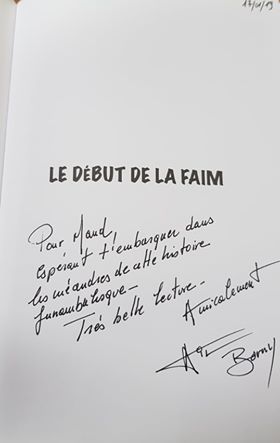 17/01/19
LE DÉBUT DE LA FAIM
Pour Maud,
Espérant t'embarquer dans
les méandres de cette histoire
funambulesque -
Très belle lecture -
Amicalement